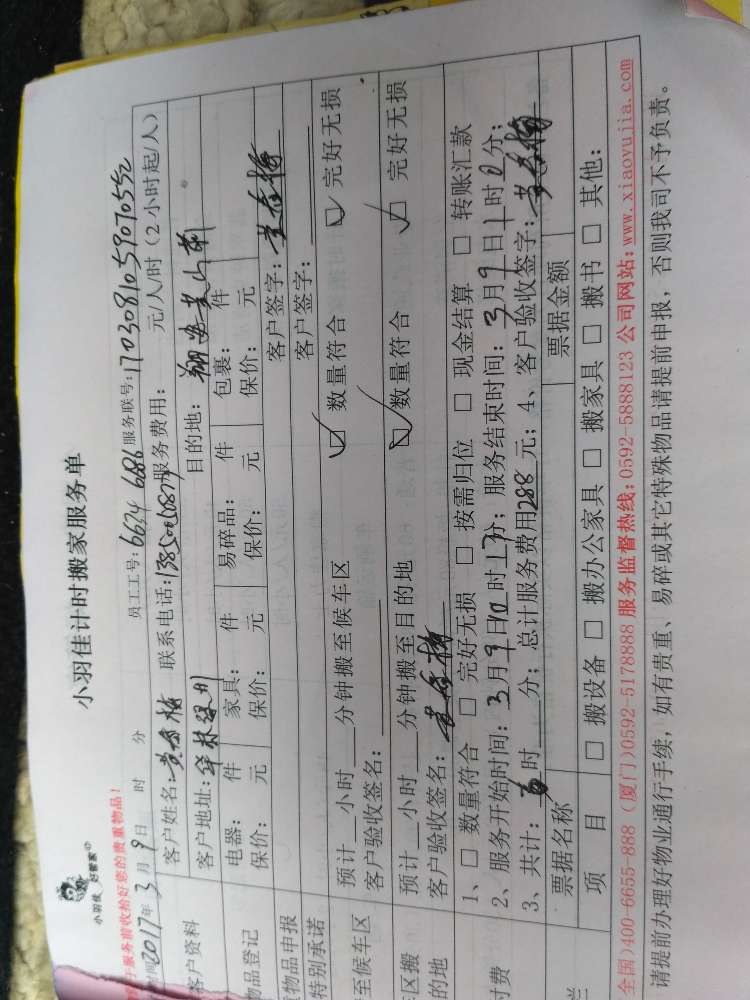 小羽佳 好管家
小羽佳计时搬家服务单
于服务前收拾好您的贵重物品!
时间2017年3月9日 时 分 员工工号:6634 686 服务联号:170308105907055
客户资料
客户姓名: 联系电话: 服务费用: 元/人/时(2小时起/人)
客户地址: 目的地:
物品登记
电器: 件 家具: 件 易碎品: 件 包裹: 件
保价: 元 保价: 元 保价: 元 保价: 元
物品申报 客户签字:
特别承诺 客户签字:
至候车区 预计 小时 分钟搬至候车区 ☑ 数量符合 ☑ 完好无损
客户验收签名:
车区搬 预计 小时 分钟搬至目的地 ☑ 数量符合 ☑ 完好无损
的地 客户验收签名:
1、□ 数量符合 □ 完好无损 □ 按需归位 □ 现金结算 □ 转账汇款
付费 2、服务开始时间:3月9日10时17分;服务结束时间:3月9日 时 分;
3、共计: 时 分; 总计服务费用288元; 4、客户验收签字:
票据名称 票据金额
项 目 □ 搬设备 □ 搬办公家具 □ 搬家具 □ 搬书 □ 其他:
全国)400-6655-888 (厦门)0592-5178888 服务监督热线:0592-5888123 公司网站:www.xiaoyujia.com
请提前办理好物业通行手续,如有贵重、易碎或其它特殊物品请提前申报,否则我司不予负责。